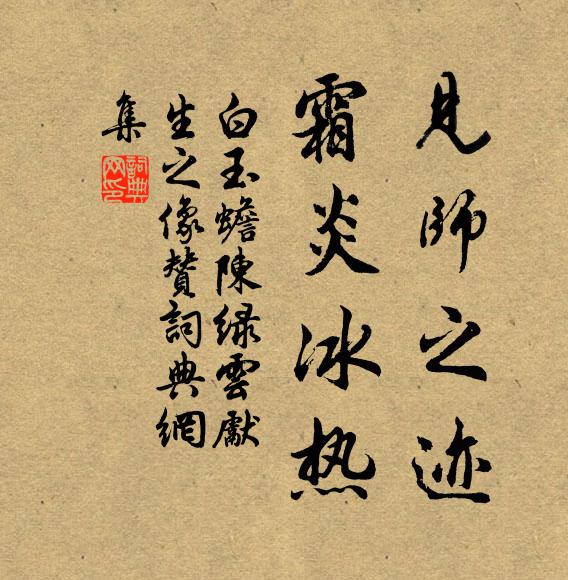 見師之迹
霜炎冰热
白玉蟾陳緑雲獻
生之像贊詞典網
集
詞典
网印